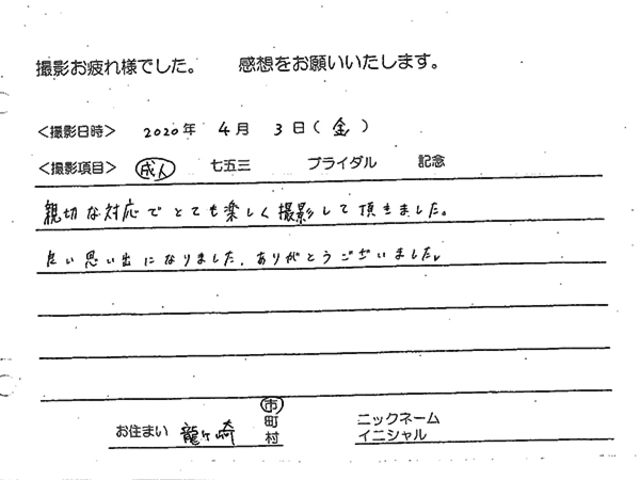 撮影お疲れ様でした。 感想をお願いいたします。
<撮影日時> 2020年 4月 3日(金)
<撮影項目> 成人 七五三 ブライダル 記念
親切な対応でとても楽しく撮影して頂きました。
良い思い出になりました。ありがとうございました。
お住まい 龍ヶ崎 市 町 村
ニックネーム
イニシャル